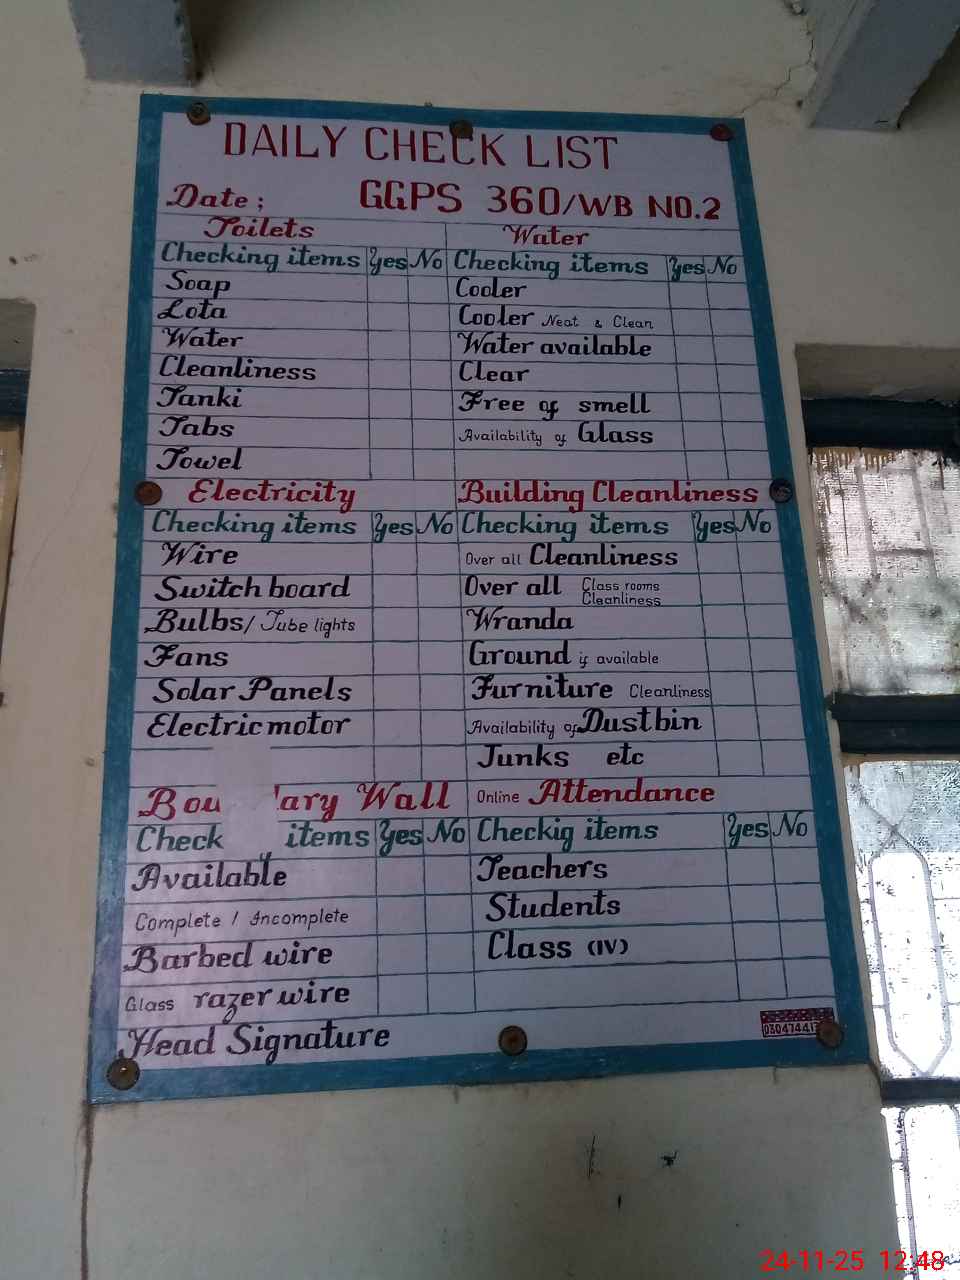 DAILY CHECK LIST
Date; GGPS 360/WB NO.2
Toilets
Checking items Yes No
Soap
Lota
Water
Cleanliness
Tanki
Tabs
Towel
Water
Checking items Yes No
Cooler
Cooler Neat & Clean
Water available
Clear
Free of smell
Availability of Glass
Electricity
Checking items Yes No
Wire
Switch board
Bulbs/ Tube lights
Fans
Solar Panels
Electric motor
Building Cleanliness
Checking items Yes No
Over all Cleanliness
Over all Class rooms Cleanliness
Wranda
Ground is available
Furniture Cleanliness
Availability of Dustbin
Junks etc
Bou ary Wall
Check items Yes No
Available
Complete / Incomplete
Barbed wire
Glass razer wire
Online Attendance
Checkig items Yes No
Teachers
Students
Class (IV)
Head Signature
24-11-25 12:48